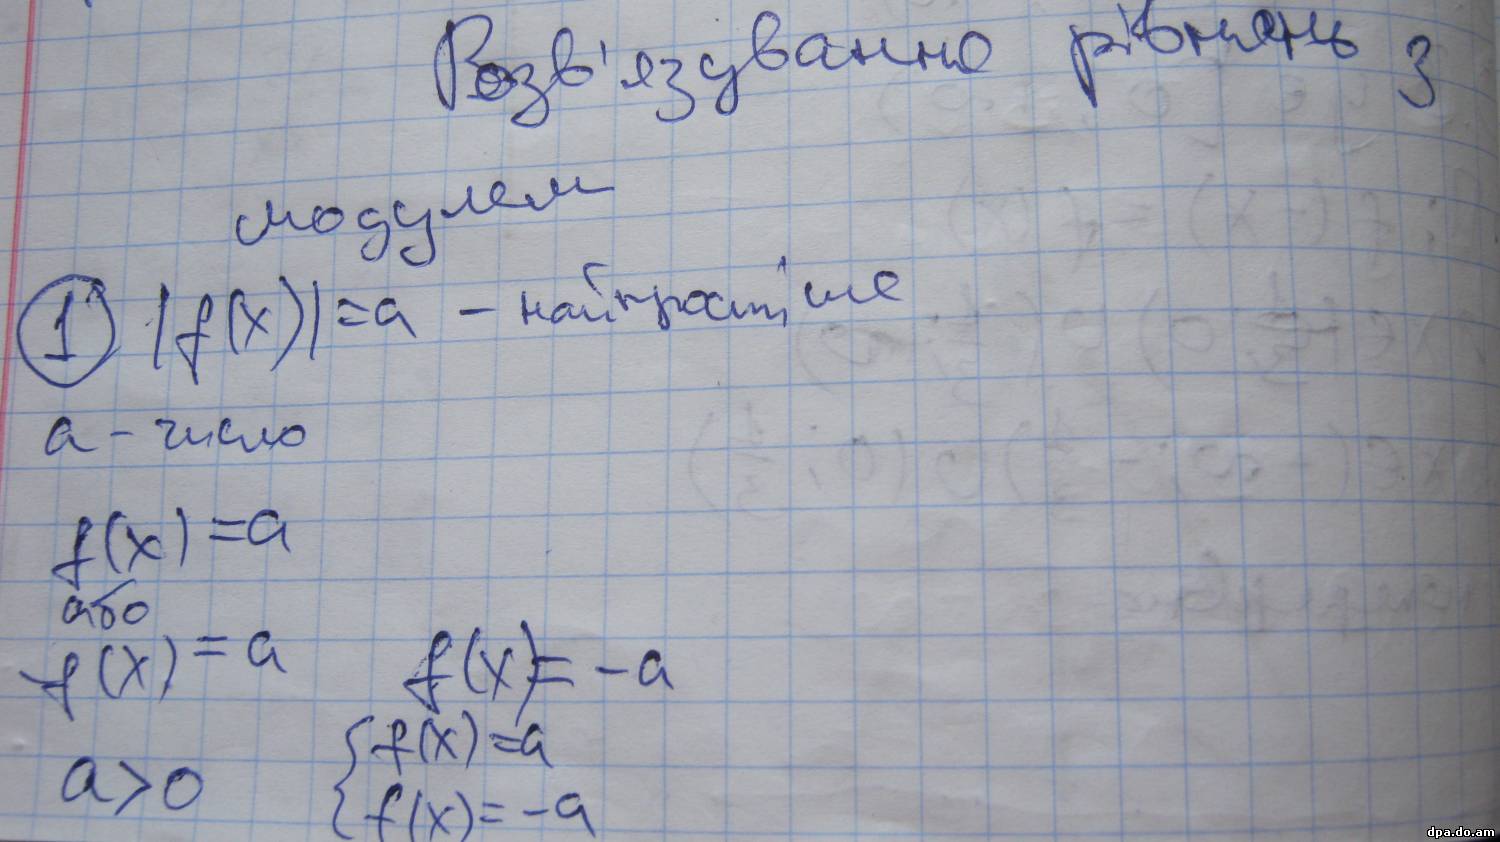 Розв'язуванно рівнянь з
модулем
1 |f(x)|=a – найпростіше
a – число
f(x)=a
або
f(x)=a f(x)=-a
a>0 { f(x)=a
f(x)=-a
dpa.do.am